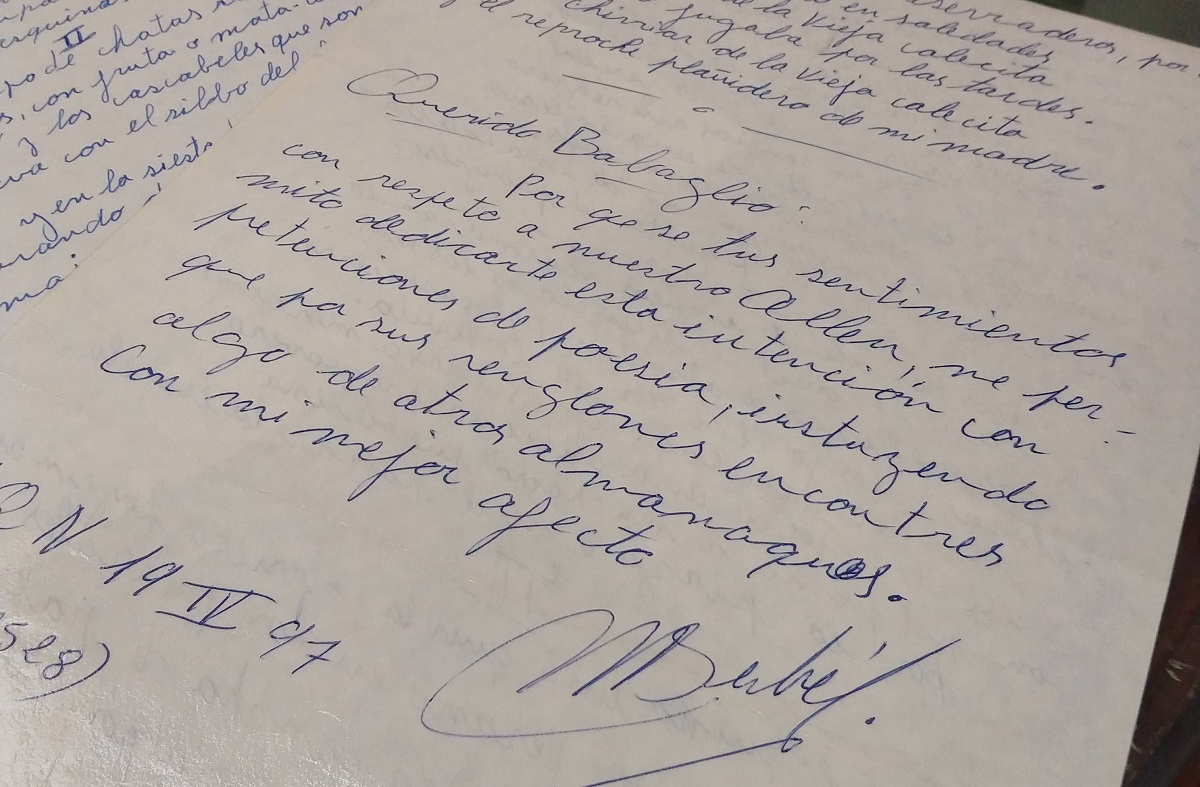 esquina
II
po de chatas
con fruta o mata
y los cascabeles que son
eva con el silbo del
y en la siesta
mando!
aserraderos, por
en soledades
de la vieja calecita
jugaba por las tardes.
chirriar de la vieja calecita
el reproche plañidero de mi madre.
Querido Babaglio:
Por qe se tus sentimientos
con respeto a nuestro Allen, me per-
mito dedicarte esta intención con
petenciones de poesia, instazendo
que po sus renglones encontres
algo de atros almanaques.
Con mi mejor afecto
Q N 19 IV 97
528)
MBerbél.